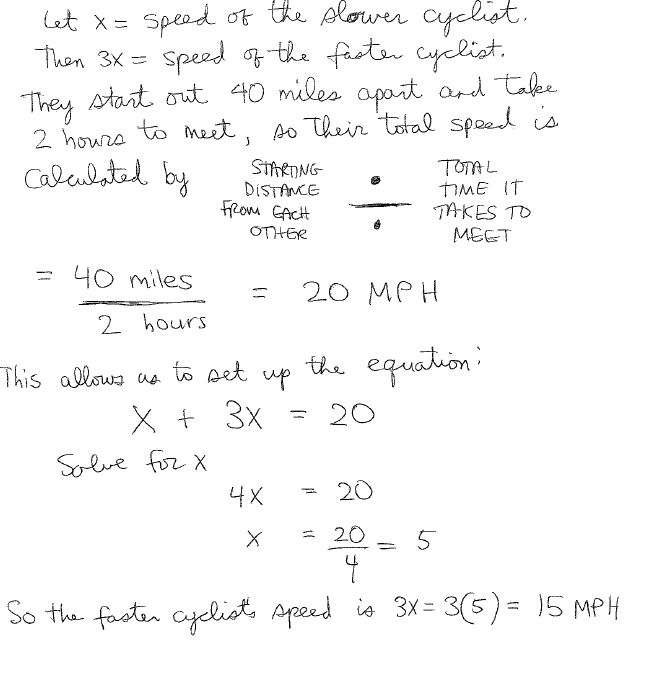 Let x = speed of the slower cyclist.
Then 3x = speed of the faster cyclist.
They start out 40 miles apart and take
2 hours to meet, so their total speed is
calculated by STARTING DISTANCE FROM EACH OTHER ÷ TOTAL TIME IT TAKES TO MEET
= 40 miles / 2 hours = 20 MPH
This allows us to set up the equation:
X + 3X = 20
Solve for X
4X = 20
X = 20/4 = 5
So the faster cyclist's speed is 3X = 3(5) = 15 MPH